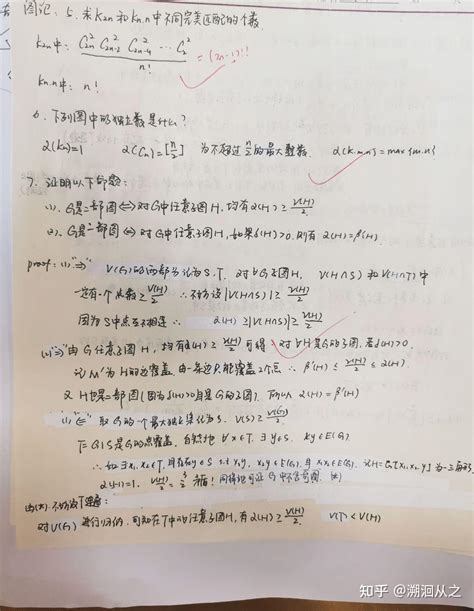 图论. 5. 求K2n和Kn.n中不同完美匹配的个数
K2n中: C²2n C²2n-2 C²2n-4 ··· C²2 / n! = (2n-1)!!
Kn.n中: n!
6. 下列图中的独立数是什么?
α(Kn)=1 α(Cn)=[n/2] 为不超过n/2的最大整数. α(Km,n)=max{m.n}
7. 证明以下命题:
(1). G是二部图⇔对G中任意子图H, 均有α(H)≥ν(H)/2
(2). G是二部图⇔对G中任意子图H, 如果δ(H)>0.则有α(H)=β'(H)
proof: (1)"⇒" V(G)的两部分记为S.T. 对∀G子图H, V(H∩S)和V(H∩T)中
一定有一个点数≥ν(H)/2 ∴不妨设|V(H∩S)|≥ν(H)/2
因为S中点互不相连 ∴ α(H)≥|V(H∩S)|≥ν(H)/2
由G任意子图H, 均有α(H)≥ν(H)/2可得 对∀H是G的子图, 若δ(H)>0,
记M'为H的边覆盖, 由一条边只能覆盖2个点
又H也是二部图(因为H是G的子图).
(1)"⇐" 取G的一个最大独立集记为S. ν(S)≥ν(G)/2.
T=G\S是G的点覆盖, 自然地 ∀x∈T, ∃y∈S, xy∈E(G)
∴如∃x1,x2∈T, 且存在y∈S s.t x1y, x2y∈E(G), 且x1x2∈E(G). 记H=G[{x1,x2,y}]为一三角形
α(H)=1. ν(H)/2=3/2 矛盾! 同样地可证G中不含奇圈.
对V(G)进行归纳, 可知在T中的任意子图H, 有α(H)≥ν(H)/2.
知乎 @溯洄从之